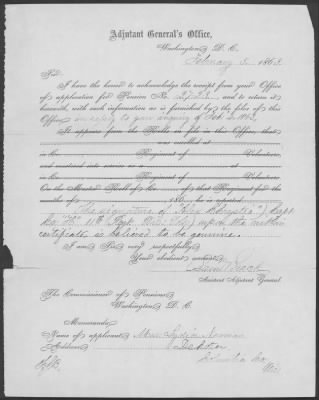 Adjutant General's Office,
Washington, D. C.
February 3, 1863.
Sir:
I have the honor to acknowledge the receipt from your Office
of application for Pension No. and to return it
herewith, with such information as is furnished by the files of this
Office, in reply to your inquiry of Feb 2, 1863.
It appears from the Rolls on file in this Office, that
was enrolled at
in Co. Regiment of Volunteers
and mustered into service at
in Co. Regiment of Volunteers
On the Muster Roll of Co. of that Regiment, for the
months of 186 , he is reported
The signature of Capt
Co. 11th Regt. Wis. Vols. upon the within
certificate is believed to be genuine.
I am, Sir, very respectfully,
Your obedient servant,
Assistant Adjutant General.
The Commissioner of Pensions,
Washington, D. C.
Memoranda:
Name of applicant, Mrs. Lydia
Address,
Columbia Co
Wis.